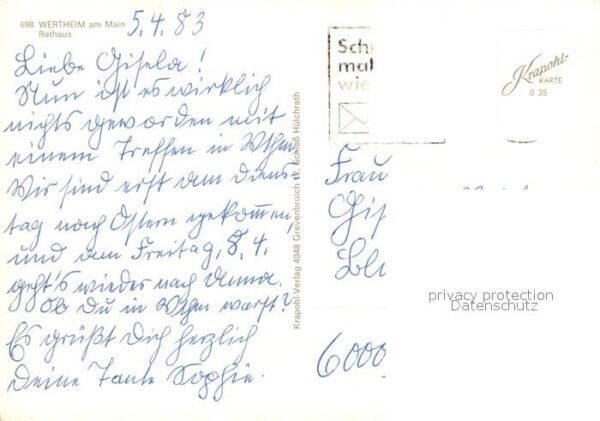 698 WERTHEIM am Main
Rathaus
5.4.83
Liebe Gisela!
Nun ist es wirklich
nichts geworden mit
einem Treffen in Wthm.
Wir sind erst am Diens-
tag nach Ostern gekommen,
und am Freitag, 8.4.
geht's wieder nach
Ob Du in Wthm warst?
Es grüßt Dich herzlich
Deine Tante Sophie.
Krapohl-Verlag 4048 Grevenbroich Schloß Hülchrath
Sch
mal
wie
Krapohl-
KARTE
0 35
Frau
Gis
Bl
6000
privacy protection
Datenschutz